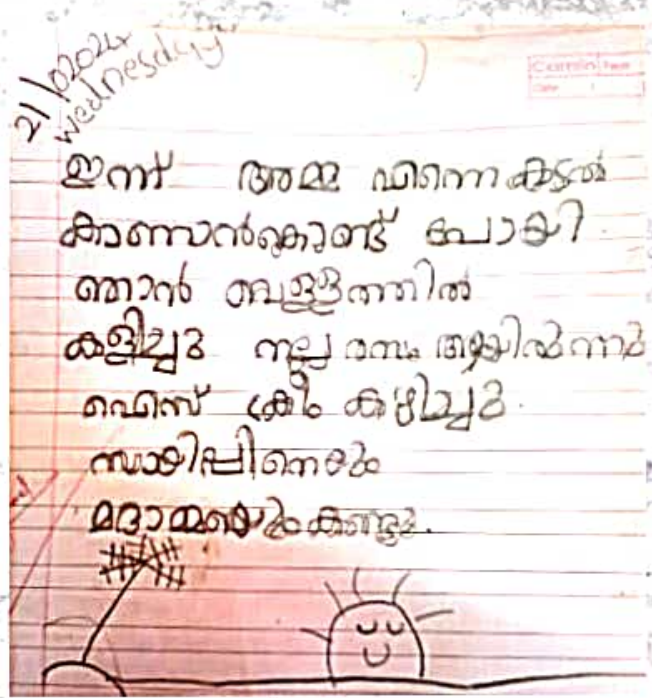 21/02024
wednesday
Camlin Page
Date
ഇന്ന് അമ്മ എന്നെ കടൽ
കാണാൻ കൊണ്ട് പോയി.
ഞാൻ വെള്ളത്തിൽ
കളിച്ചു നല്ല രസം ആയിരുന്നു
ഐസ് ക്രീം കഴിച്ചു.
സായിപ്പിനെയും
മദാമ്മയെയും കണ്ടു.